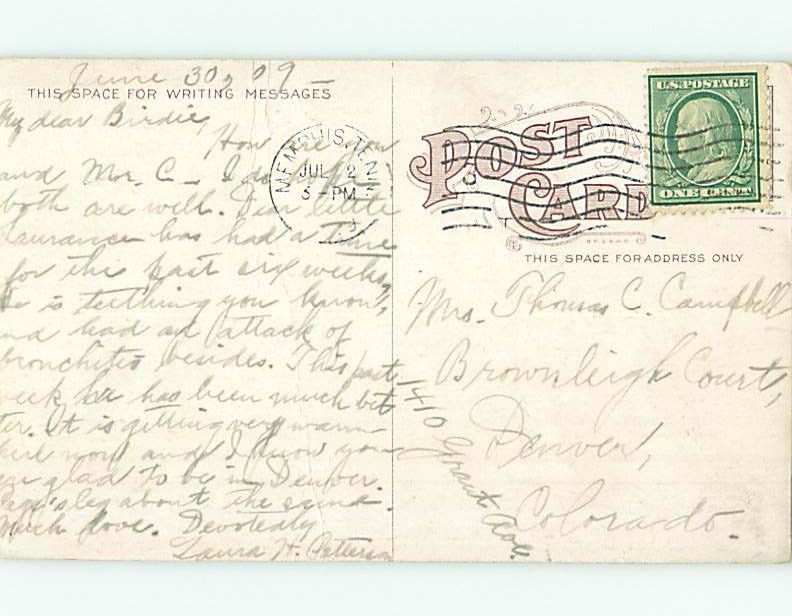 June 30, 09
THIS SPACE FOR WRITING MESSAGES
My dear Birdie,
How are you
and Mr. C— I do hope
both are well. Dear little
Laurance has had a time
for the past six weeks,
He is teething you know,
and had an attack of
bronchitis besides. This past
week he has been much bet
ter. It is getting very warm
here now and I know you
are glad to be in Denver.
Page's leg about the same.
Much love. Devotedly
Laura H. Patterson
MEMPHIS, TENN.
JUL 2
3-PM
POST
CARD
U.S. POSTAGE
ONE CENT
THIS SPACE FOR ADDRESS ONLY
Mrs. Thomas C. Campbell
Brownleigh Court,
Denver,
Colorado.
1410 Grant Ave.